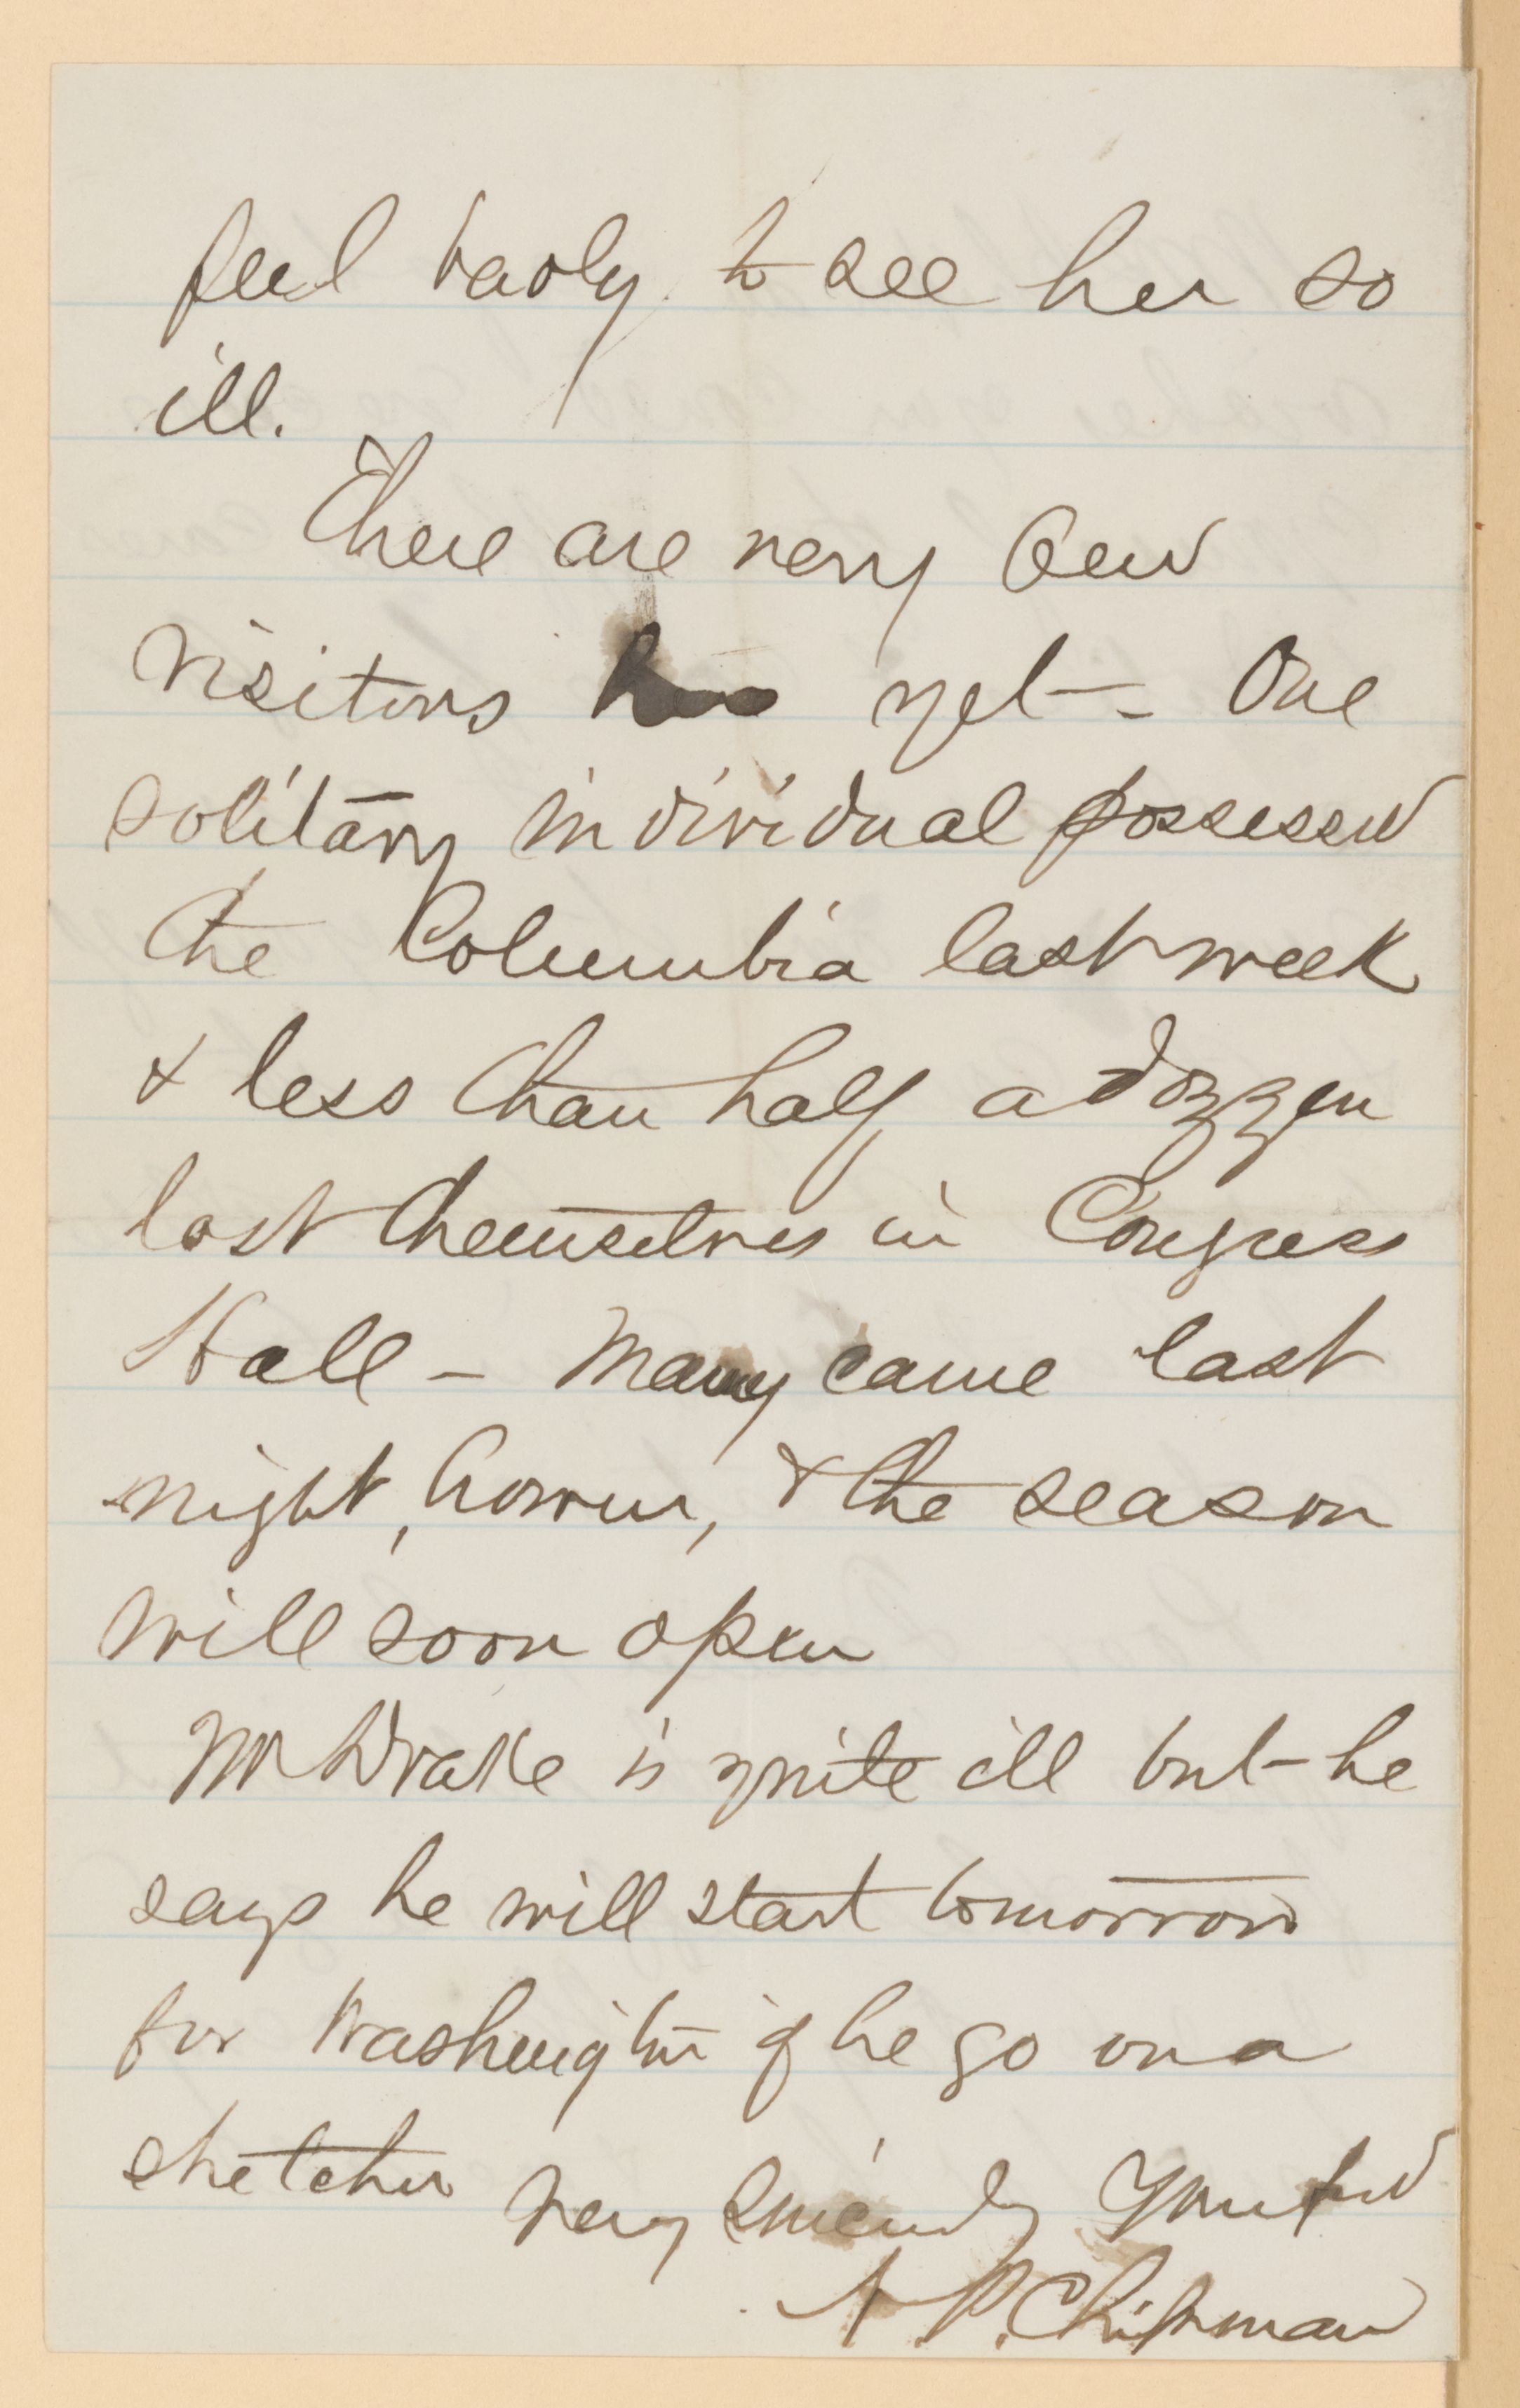 feel badly to see her so
ill.
There are very few
visitors here yet - One
solitary individual possessed
the Columbia last week
& less than half a dozzen
lost themselves in Congress
Hall - Many came last
night, however, & the season
will soon open
Mr Drake is quite ill but he
says he will start tomorrow
for Washington if he go on a
stretcher Very sincerely Your frd
N. P. Chipman